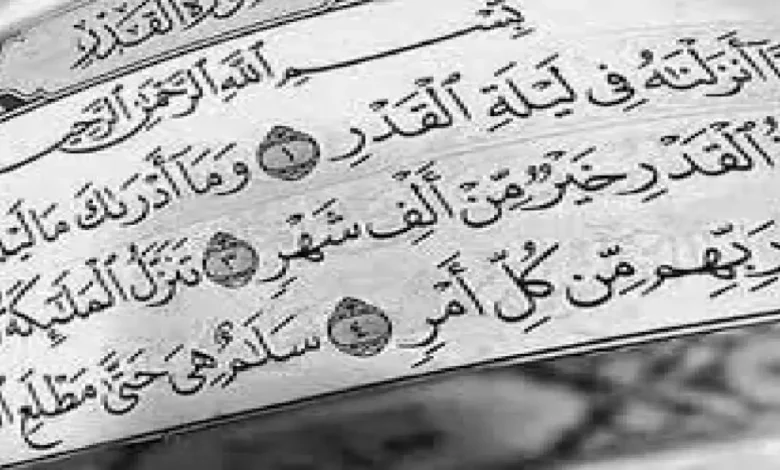 سورة القدر
بسم الله الرحمن الرحيم
أَنزَلْنَٰهُ فِى لَيْلَةِ ٱلْقَدْرِ ١ وَمَآ أَدْرَىٰكَ مَا
ٱلْقَدْرِ خَيْرٌ مِّنْ أَلْفِ شَهْرٍ ٣ تَنَزَّلُ ٱلْمَلَٰٓئِكَةُ
رَبِّهِم مِّن كُلِّ أَمْرٍ ٤ سَلَٰمٌ هِىَ حَتَّىٰ مَطْلَعِ